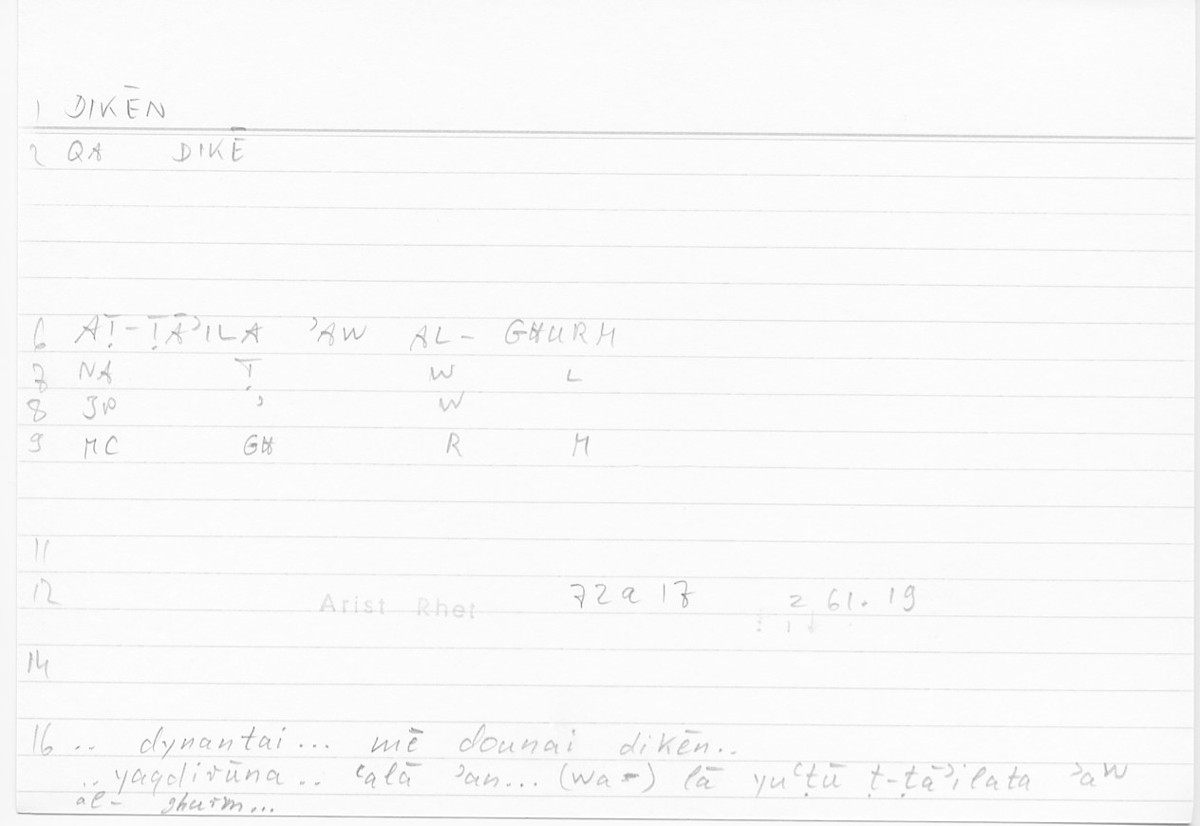 1 DIKĒN
2 QA DIKĒ
6 AṬ-ṬĀʾILA ʾAW AL-GHURM
7 NA Ṭ W L
8 ʾ W
9 MC GH R M
11
12 Arist Rhet 72a17 2 61.19
14
16 .. dynantai... mē dounai dikēn..
.. yaqdirūna.. ʿalā ʾan... (wa-) lā yuʿṭū ṭ-ṭāʾilata ʾaw
al- ghurm...